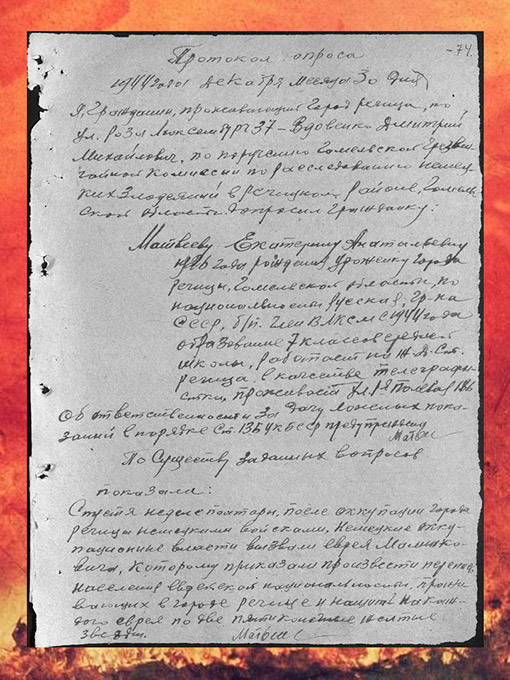 -74.
Протокол опроса
1944 года декабря месяца 30 дня
Я, гражданин, проживающий город Речица, по
ул. Роза Люксенбург 37 - Вдовенко Дмитрий
Михайлович, по поручению Гомельской Чрезвы-
чайной комиссии по расследованию немец-
ких злодеяний в Речицком районе, Гомель-
ской области допросил гражданку:
Матвееву Екатерину Анатольевну
1926 года рождения, уроженку города
Речицы, Гомельской области, по
национальности русская, гр-ка
СССР, б/п. член ВЛКСМ с 1944 года
образование 7 классов средней
школы, работает на ж.д. ст.
Речица, в качестве телеграфи-
стки, проживает ул. Полевая 186
Об ответственности за дачу ложных пока-
заний в порядке ст. 136 УК БССР предупреждена
Матвее
По существу заданных вопросов
показала:
Спустя неделе полтары, после оккупации города
Речицы немецкими войсками, немецкие окку-
пационные власти вызвали еврея Малинко-
вича, которому приказали произвести перепись
населения еврейской национальности, прожи-
вающих в городе Речице и нашить на каж-
дого еврея по две пятиконечные желтые
звезды.
Матвее